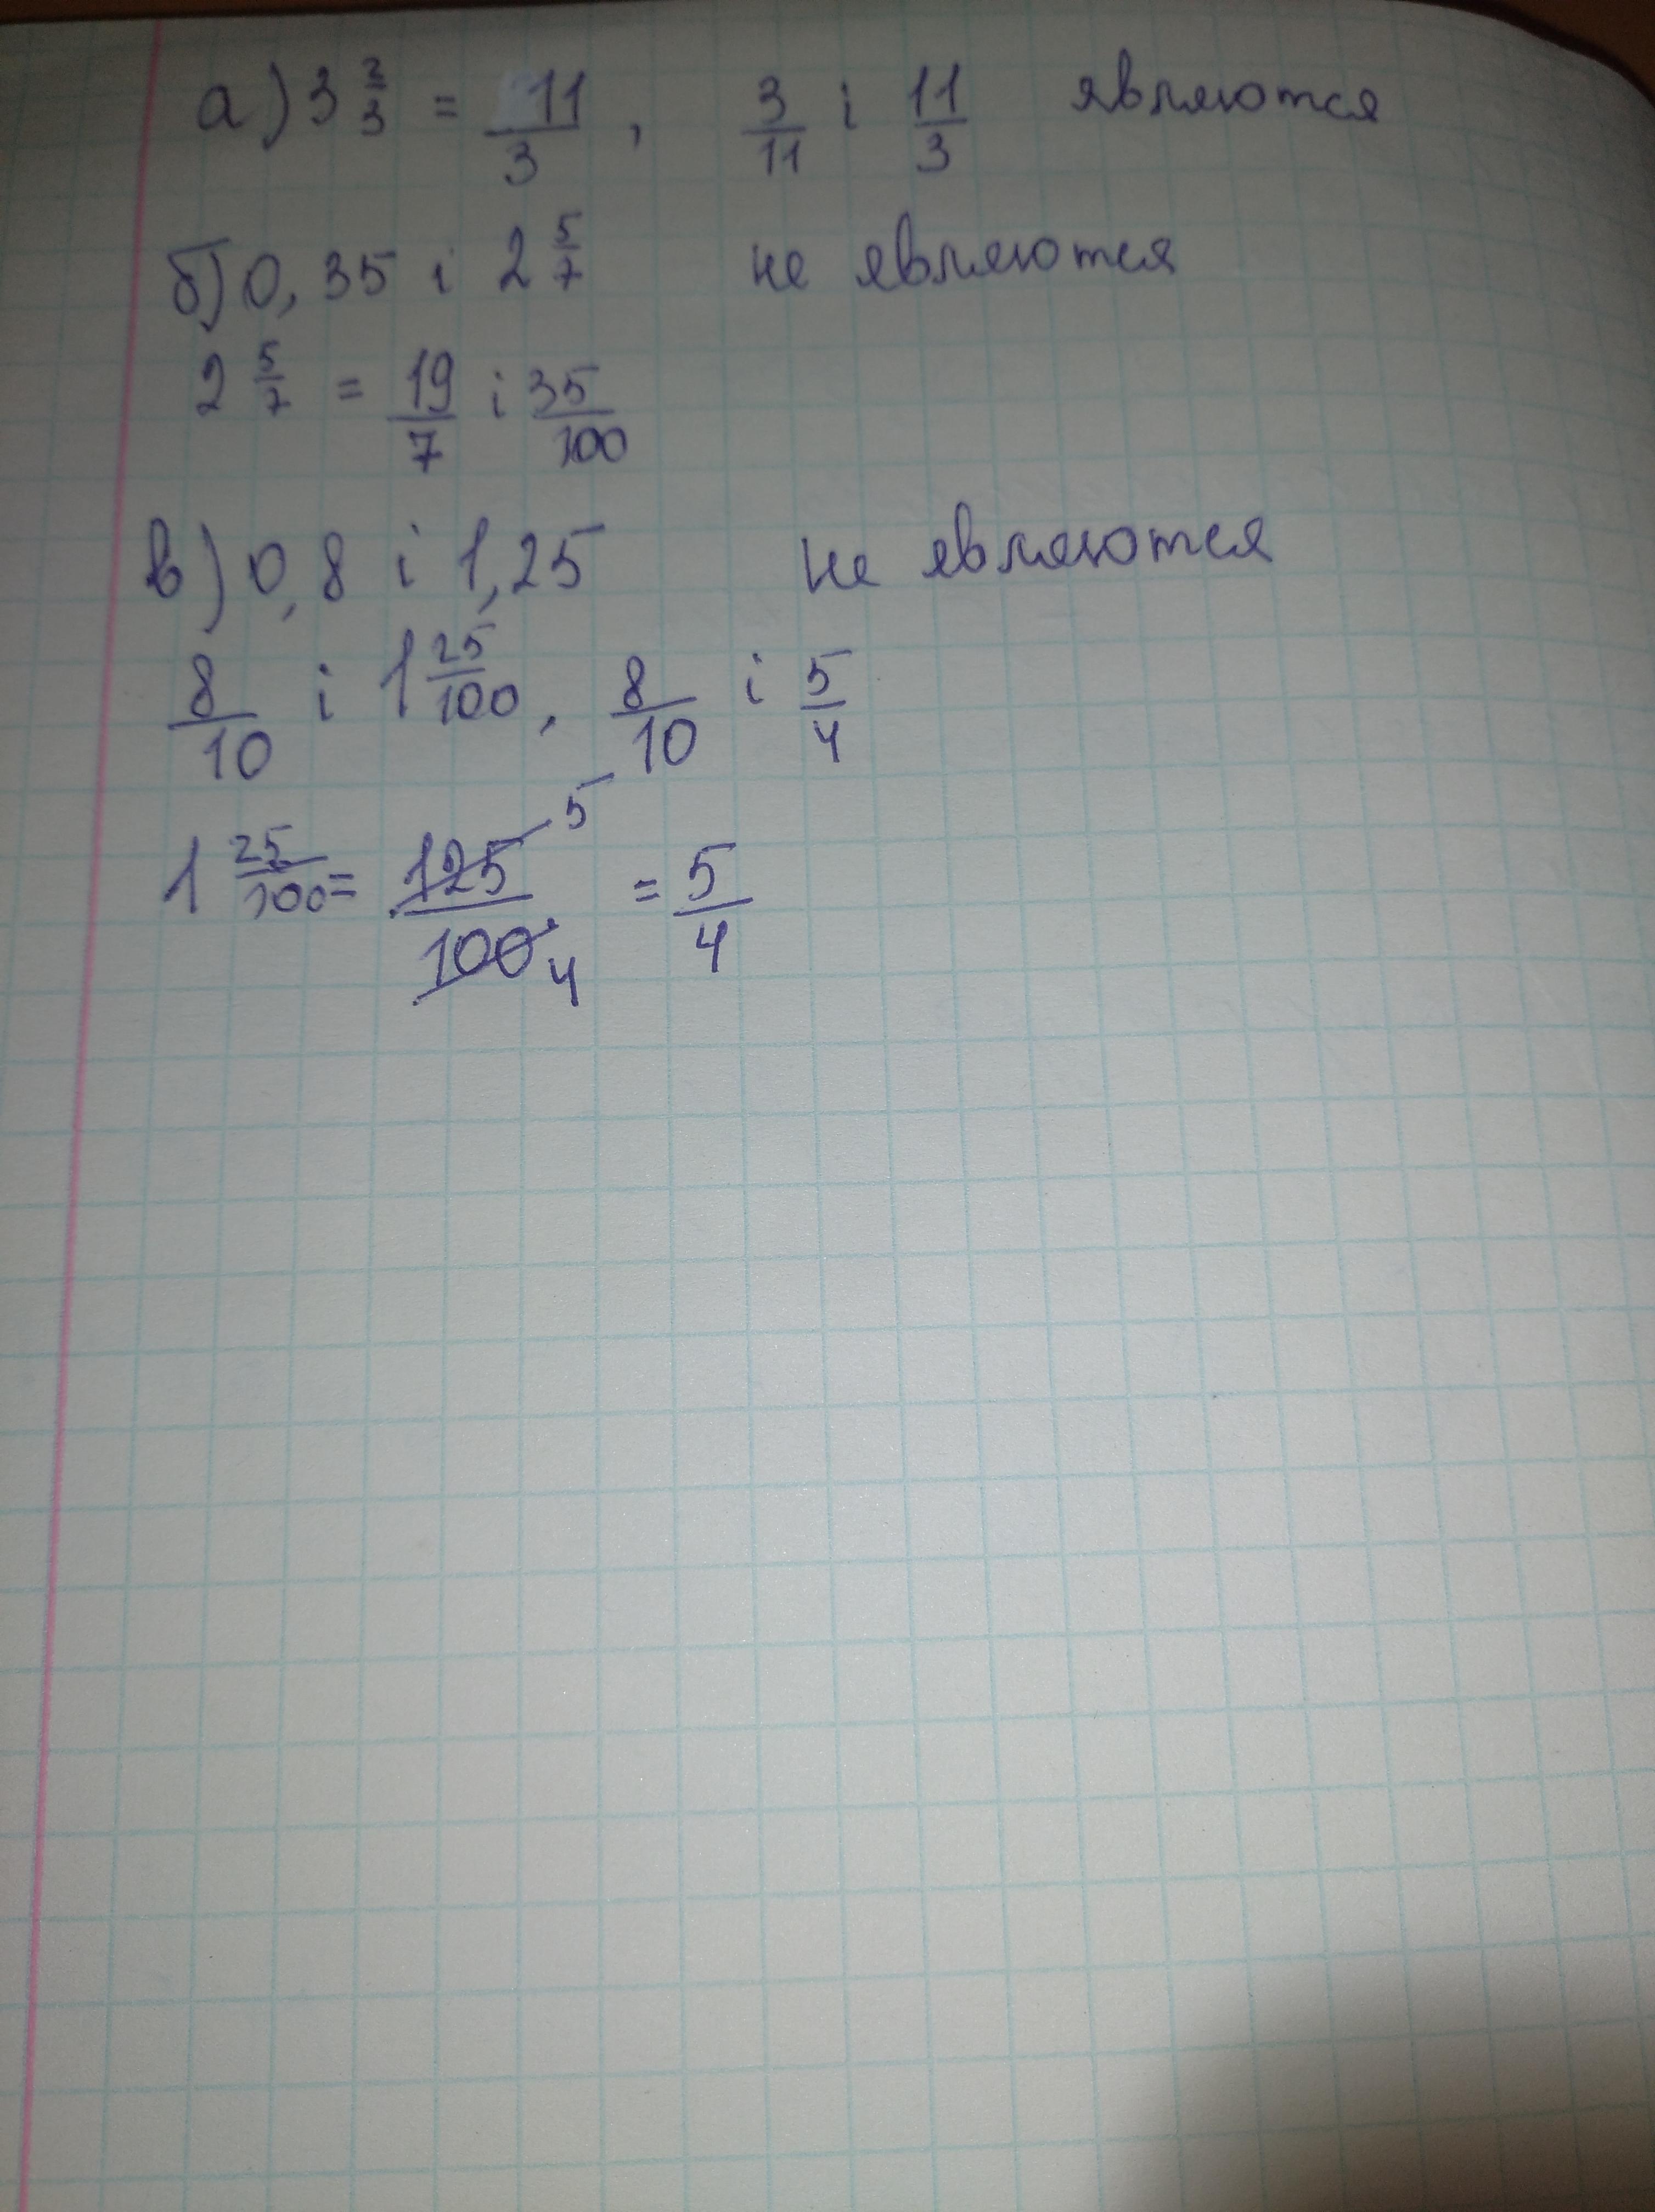 а) 3 2/3 = 11/3, 3/11 і 11/3 являются
б) 0,35 і 2 5/7 не являются
2 5/7 = 19/7 і 35/100
в) 0,8 і 1,25 не являются
8/10 і 1 25/100, 8/10 і 5/4
1 25/100 = 125/100 5 4 = 5/4